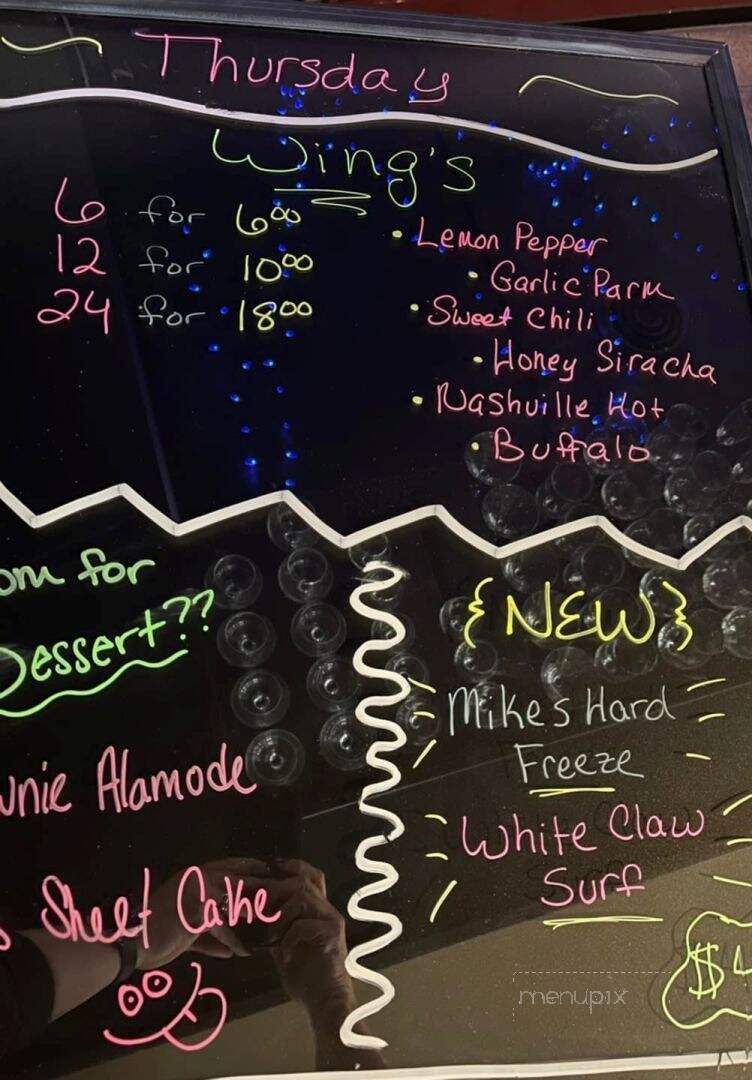 Thursday
Wing's
6 for 6⁰⁰
12 for 10⁰⁰
24 for 18⁰⁰
• Lemon Pepper
• Garlic Parm
• Sweet Chili
• Honey Siracha
• Nashville Hot
• Buffalo
om for
Dessert??
wnie Alamode
s Sheet Cake
{NEW}
Mikes Hard
Freeze
White Claw
Surf
$4
menupix